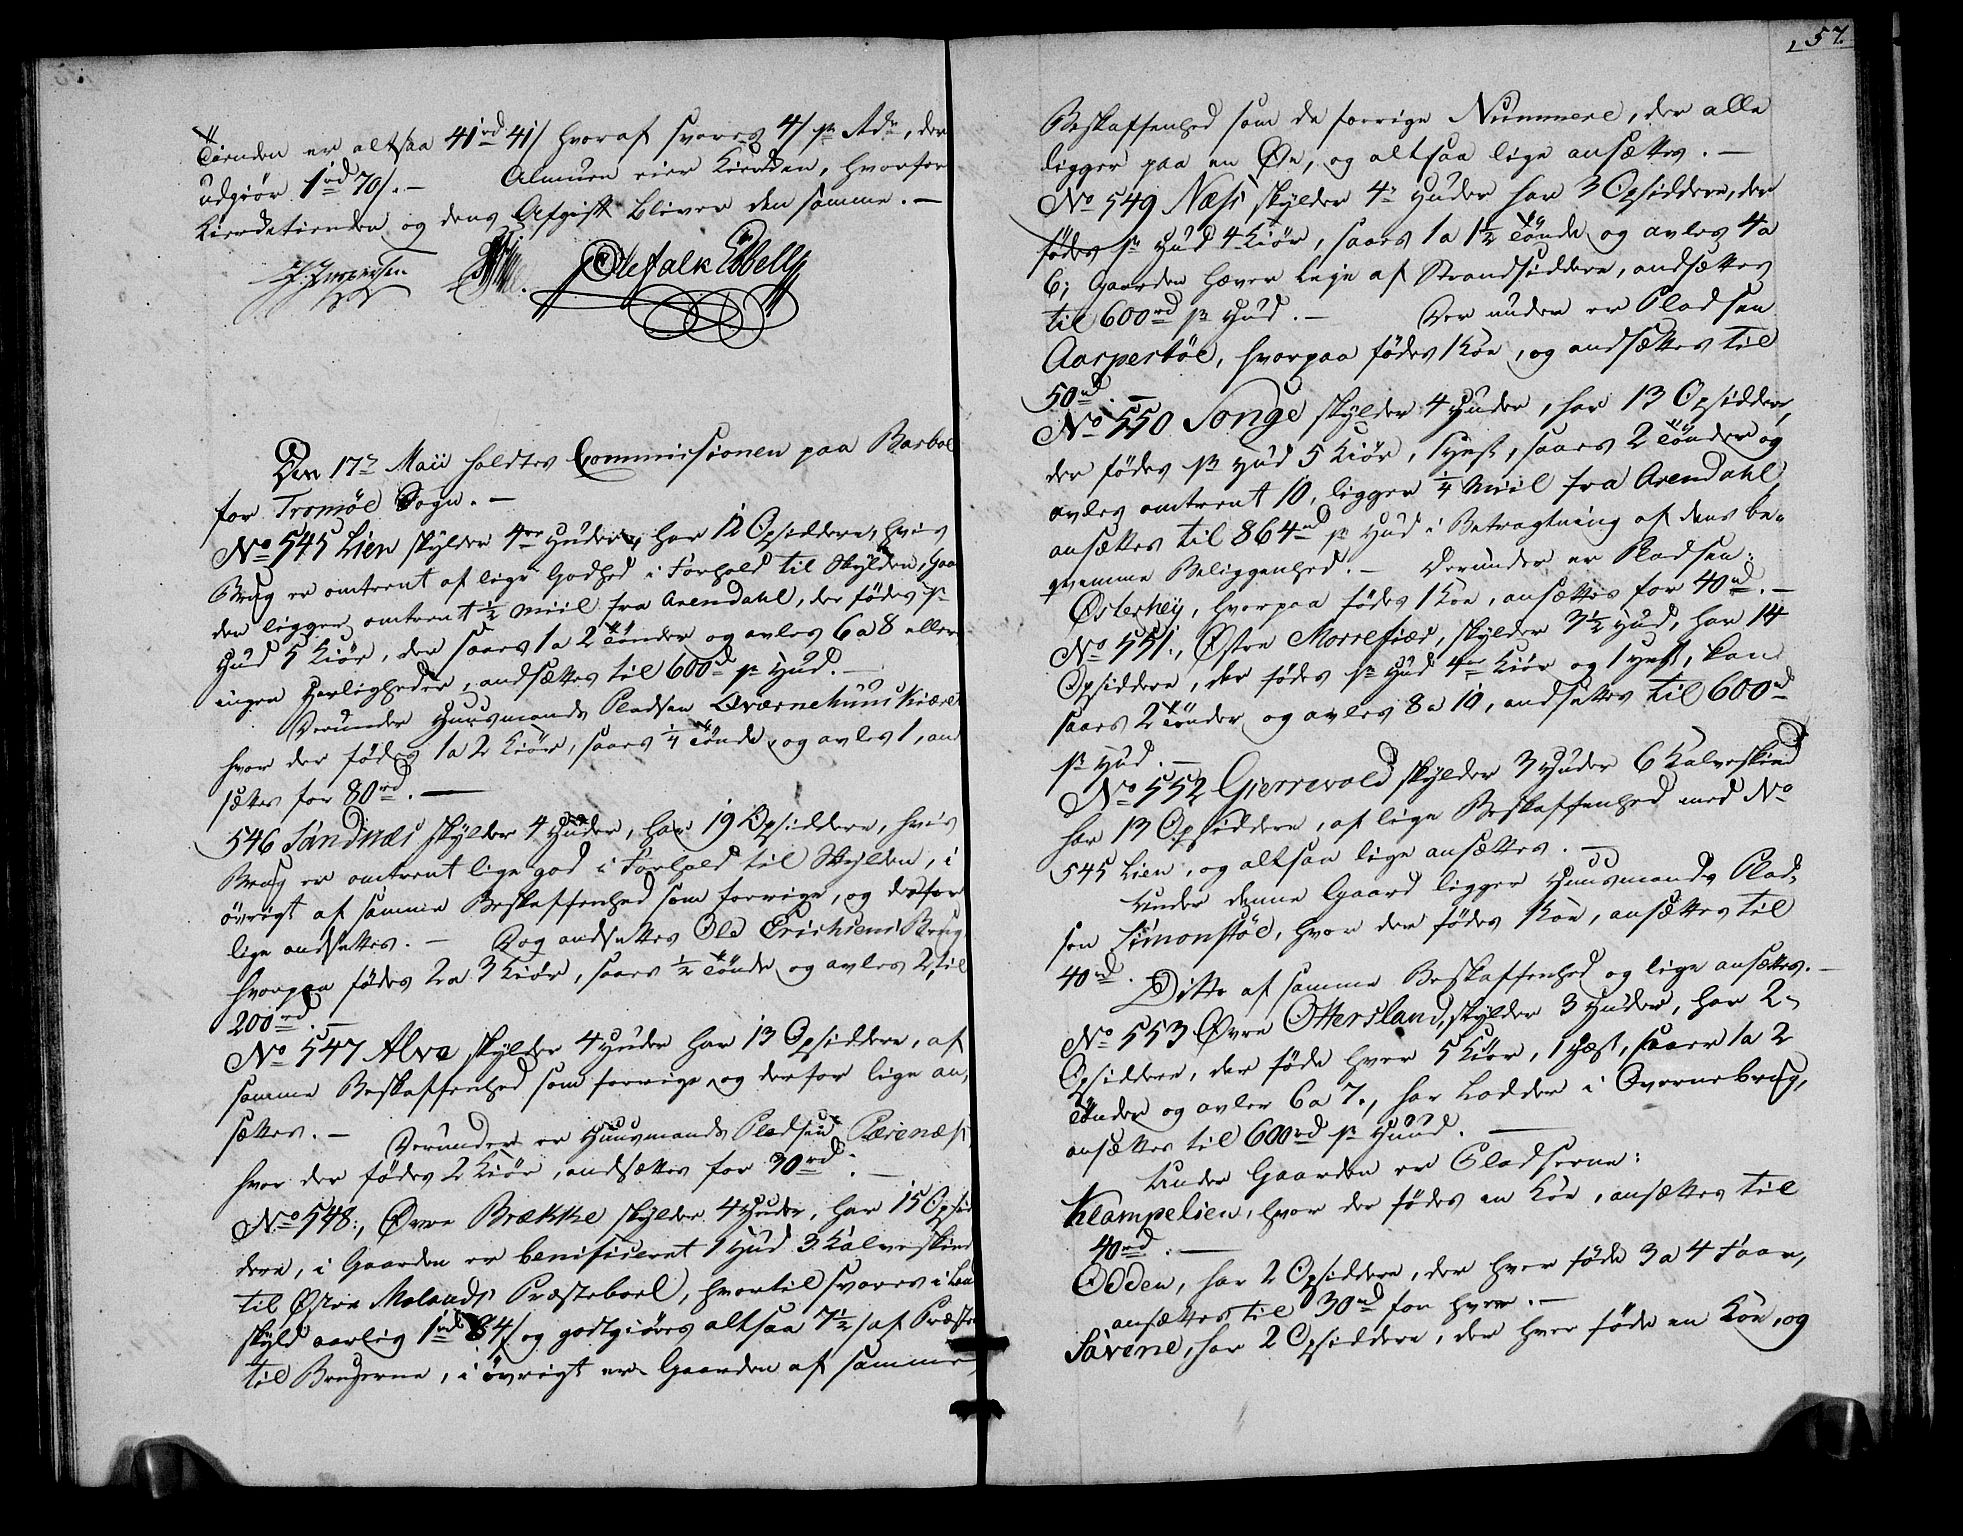 Tienden er altsaa 41rd 41s hvoraf svares 4s pr Rdr, der
udgiør 1rd 70s. — Almuen eier Kirken, hvorfor
Kirketienden og dens Afgift bliver den samme. —
Ole Falk Ebbell
Den 17de Maii holdtes Commissionen paa Barboe
for Tromøe Sogn. —
No 545 Lien skylder 4re Huder, har 12 Opsiddere, hvis
Brug er omtrent af lige Godhed i Forhold til Skylden, Gaar
den ligger omtrent ½ Miil fra Arendahl, der fødes pr
Hud 5 Kiør, der saaes 1 a 2 Tønder og avles 6 a 8 eller
ingen Herligheder, andsættes til 600rd pr Hud. —
Derunder Huusmands Pladsen Qværnehuus Kiæret
hvor der fødes 1 a 2 Kiør, saaes ¼ Tønde og avles 1, an
sættes for 80rd. —
546 Sandnæs skylder 4 Huder, har 19 Opsiddere, hvis
Brug er omtrent lige god i Forhold til Skylden, i
øvrigt af samme Beskaffenhed som forrige, og derfor
lige andsættes. — Dog andsættes Ole Erichsens Brug
hvorpaa fødes 2 a 3 Kiør, saaes ½ Tønde og avles 2, til
200rd. —
No 547 Alve skylder 4 Huder har 13 Opsiddere, af
samme Beskaffenhed som forrige og derfor lige an,
sættes. — Derunder er Huusmands Pladsen Pærenæs,
hvor der fødes 2 Kiør, andsættes for 30rd. —
No 548., Øvre Brække skylder 4 Huder, har 15 Opsid
dere, i Gaarden er benificeret 1 Hud 3 Kalveskind
til Østre Molands Præsteboel, hvortil svares i Land
skyld aarlig 1rd 84s og godtgiøres altsaa 7½s af Præsten
til Brugerne, i øvrigt er Gaarden af samme
157.
Beskaffenhed som de forrige Nummere, der alle
ligger paa en Øe, og altsaa lige ansættes. —
No 549 Næss skylder 4re Huder har 3 Opsiddere, der
fødes pr Hud 4 Kiør, saaes 1 a 1½ Tønde og avles 4 a
6; Gaarden hæver Leje af Strandsiddere, andsættes
til 600rd pr Hud. — Der under er Pladsen
Aasperstøe, hvorpaa fødes 1 Koe, og andsættes til
50rd. —
No 550 Songe skylder 4 Huder, har 13 Opsiddere,
der fødes pr Hud 5 Kiør, 1 Hest, saaes 2 Tønder og
avles omtrent 10, ligger ¼ Miil fra Arendahl,
ansættes til 864rd pr Hud i Betragtning af dens be„
qvemme Beliggenhed. — Derunder er Pladsen:
Østerhey, hvorpaa fødes 1 Koe, ansættes for 40rd. —
No 551., Østre Morrefiær, skylder 3½ Hud, har 14
Opsiddere, der fødes pr Hud 4re Kiør og 1 Hest, kan
saaes 2 Tønder og avles 8 a 10, andsættes til 600rd
pr Hud. —
No 552 Gierrevold skylder 3 Huder 6 Kalveskind
har 13 Opsiddere, af lige Beskaffenhed med No
545 Lien, og altsaa lige ansættes. —
Under denne Gaard ligger Huusmands Plad„
sen Simonstøe, hvor der fødes 1 Koe, ansættes til
40rd. Ditto af samme Beskaffenhed og lige ansættes. —
No 553 Øvre Ottersland, skylder 3 Huder, har 2
Opsiddere, der føde hver 5 Kiør, 1 Hest, saaer 1 a 2
Tønder og avler 6 a 7., har Lodder i Qvernebrug,
ansættes til 600rd pr Huud. —
Under Gaarden er Pladserne:
Klampelien, hvor der fødes en Koe, ansættes til
40rd. —
Odden, har 2 Opsiddere, der hver føde 3 a 4 Faar,
ansættes til 30rd for hver. —
Savene, har 2 Opsiddere, der hver føde en Koe, og